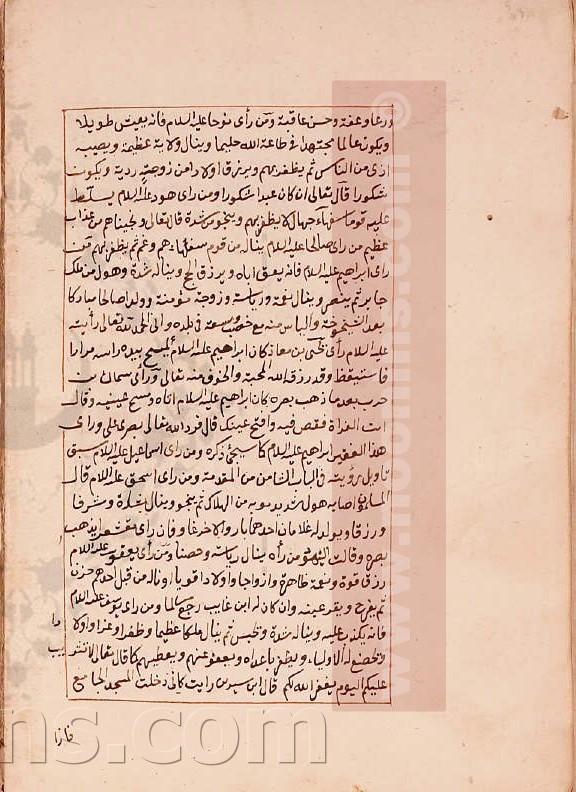 ورعا وعفة وحسن عاقبة ومن رأى نوحا عليه السلام فانه يعيش طويلا
ويكون عالما مجتهدا في طاعة الله حليما وينال ولاية عظيمة ويصيبه
اذى من الناس ثم يظفر بهم ويرزق اولادا من زوجته ردية ويكون
شكورا قال تعالى ان كان عبدا شكورا ومن راى هود عليه السلام يسلط
عليه قوما سفهاء جهال لا يظفر بهم وينجو من شدة قال تعالى ونجيناهم من عذاب
عظيم من راى صالحا عليه السلام يناله من قوم سفهاء هم وغم ثم يظفر بهم فمن
راى ابراهيم عليه السلام فانه يعق اباه ويرزق الحج ويناله شدة وهول من ملك
جابر ثم ينصر وينال نعمة ورياسة وزوجة مؤمنة وولدا صالحا مباركا
بعد الشيخوخة والياس منه مع خصب وسعة في بلده والى الله تعالى رأيته
عليه السلام رأى يحيى بن معاذ كان ابراهيم عليه السلام يمسح بيده راسه مرارا
فاستيقظ وقد رزقه الله المحبة والخوف منه تعالى ورأى سماك بن
حرب بعد ما ذهب بصره كان ابراهيم عليه السلام اتاه ومسح عينيه وقال
ائت الفراة فغص فيه وافتح عينك قال فرد الله تعالى بصري علي وراى
هذا الفقير ابراهيم عليه السلام كما سيجئ ذكره ومن راى اسماعيل عليه السلام سبق
تاويل رؤيته في الباب الثامن من المقدمة ومن راى اسحق عليه السلام قال
المسلمون اصابه هول شديد يدنو به من الهلاك ثم ينجو وينال بشارة وشرفا
ورزقا ويولد له غلامان احدهما بار والاخر عاق وان راى متغيرا يذهب
بصره وقالت من رأه ينال رياسة وحصنا ومن رأى يعقوب عليه السلام
رزق قوة ونعمة ظاهرة وازواجا واولادا قوياء وناله من قبل احدهم حزن
ثم يفرح ويقر عينه وان كان له ابن غايب رجع سالما ومن راى يوسف عليه السلام
فانه يكذب عليه ويناله شدة وحبس ثم ينال ملكا عظيما وظفرا وعزا واولادا
وتخضع له الاولياء ويظفر باعداه ويعفو عنهم ويعطيهم كما قال تعالى لا تثريب
عليكم اليوم يغفر الله لكم قال ابن سيرين رايت كانى دخلت المسجد الجامع
فاذا